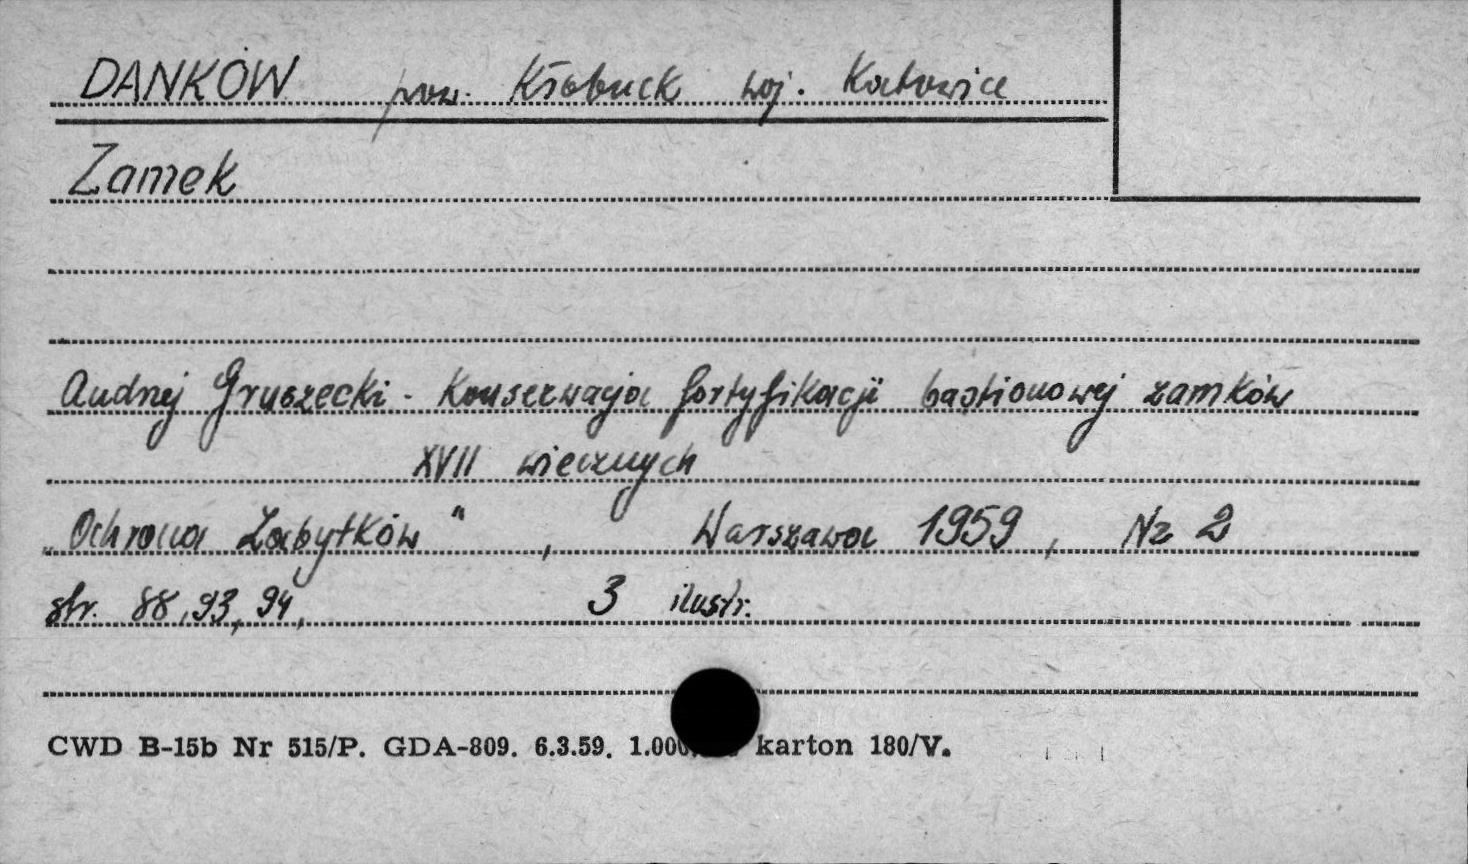 DANKÓW pow. Kłobuck woj. Katowice
Zamek
Andrzej Gruszecki - Konserwacja fortyfikacji bastionowej zamków
XVII wiecznych
„Ochrona Zabytków", Warszawa 1959, Nr 2
str. 88, 93, 94, 3 ilustr.
CWD B-15b Nr 515/P. GDA-809. 6.3.59. karton 180/V.